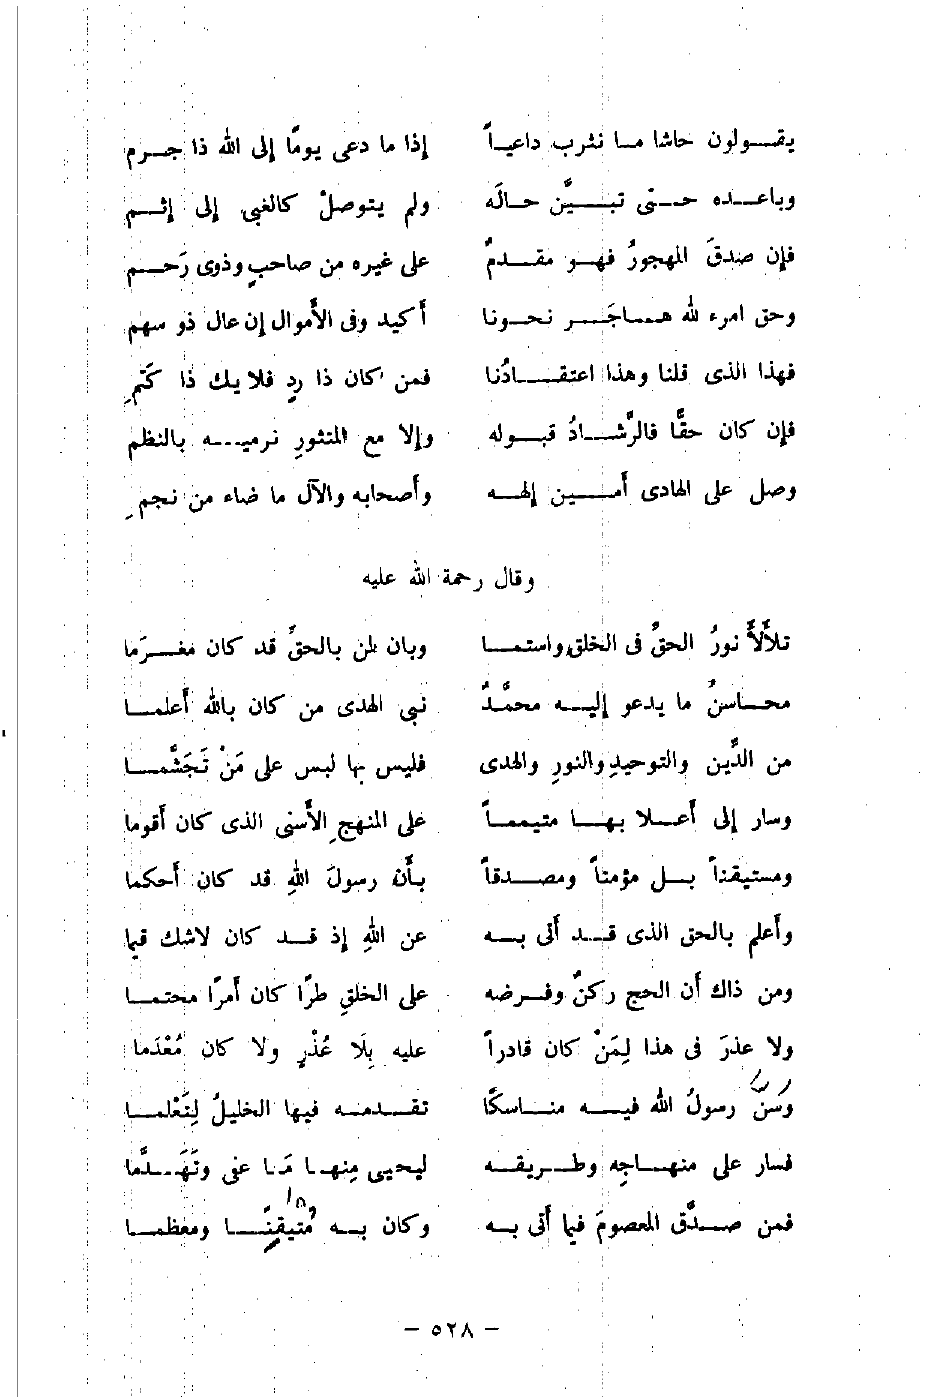 يقولون حاشا ما نثرب داعياً إذا ما دعى يومًا إلى الله ذا جرم
وباعده حتى تبيَّن حالَه ولم يتوصلْ كالغبي إلى إثم
فإن صدقَ المهجورُ فهو مقدمٌ على غيره من صاحبٍ وذوى رَحم
وحق امرء لله هاجَر نحونا أكيد وفى الأموال إن عال ذو سهم
فهذا الذى قلنا وهذا اعتقادُنا فمن كان ذا ردٍ فلا يك ذا كَتْمِ
فإن كان حقًّا فالرَّشادُ قبوله وإلا مع المنثورِ نرميه بالنظم
وصل على الهادى أمين إلهه وأصحابه والآل ما ضاء من نجمِ
وقال رحمة الله عليه
تلألأَ نورُ الحقُ فى الخلق واستما وبان لمن بالحقِّ قد كان مغرَما
محاسنُ ما يدعو إليه محمَّدٌ نبى الهدى من كان بالله أعلما
من الدِّين والتوحيدِ والنورِ والهدى فليس بها لبس على مَنْ تَجَشَّما
وسار إلى أعلا بها متيمماً على المنهجِ الأسنى الذى كان أقوما
ومستيقناً بل مؤمناً ومصدقاً بأن رسولَ اللهِ قد كان أحكما
وأعلم بالحق الذى قد أتى به عن اللهِ إذ قد كان لاشك قيما
ومن ذاك أن الحج ركنٌ وفرضه على الخلقِ طرًّا كان أمرًا محتما
ولا عذرَ فى هذا لِمَنْ كان قادراً عليه بِلَا عُذْرٍ ولا كان مُعْدَما
وَسَنَّ رسولُ الله فيه مناسكًا تقدمه فيها الخليلُ لِتَعْلما
فسار على منهاجِه وطريقه ليحيى مِنها مَا عفى وتَهَدَّما
فمن صدَّق المعصومَ فيما أتى به وكان به مُتيقنًا ومعظما
– ٥٢٨ –